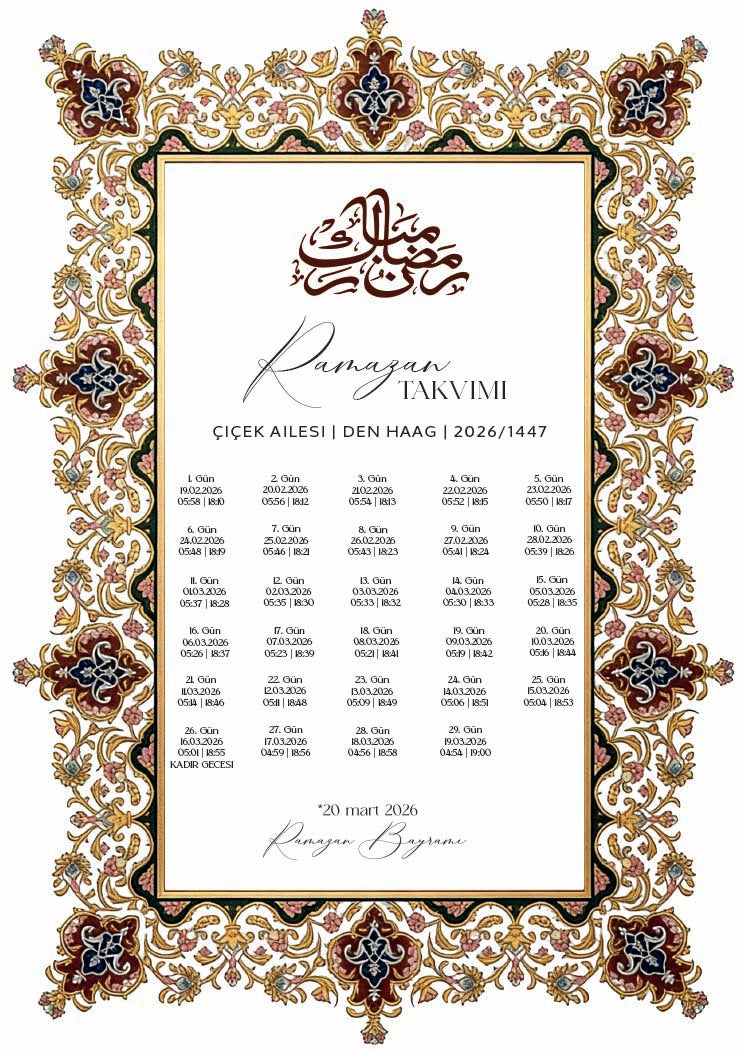 رمضان مبارك
Ramazan
TAKVIMI
ÇIÇEK AILESI | DEN HAAG | 2026/1447
1. Gün
19.02.2026
05:58 | 18:10
2. Gün
20.02.2026
05:56 | 18:12
3. Gün
21.02.2026
05:54 | 18:13
4. Gün
22.02.2026
05:52 | 18:15
5. Gün
23.02.2026
05:50 | 18:17
6. Gün
24.02.2026
05:48 | 18:19
7. Gün
25.02.2026
05:46 | 18:21
8. Gün
26.02.2026
05:43 | 18:23
9. Gün
27.02.2026
05:41 | 18:24
10. Gün
28.02.2026
05:39 | 18:26
11. Gün
01.03.2026
05:37 | 18:28
12. Gün
02.03.2026
05:35 | 18:30
13. Gün
03.03.2026
05:33 | 18:32
14. Gün
04.03.2026
05:30 | 18:33
15. Gün
05.03.2026
05:28 | 18:35
16. Gün
06.03.2026
05:26 | 18:37
17. Gün
07.03.2026
05:23 | 18:39
18. Gün
08.03.2026
05:21 | 18:41
19. Gün
09.03.2026
05:19 | 18:42
20. Gün
10.03.2026
05:16 | 18:44
21. Gün
11.03.2026
05:14 | 18:46
22. Gün
12.03.2026
05:11 | 18:48
23. Gün
13.03.2026
05:09 | 18:49
24. Gün
14.03.2026
05:06 | 18:51
25. Gün
15.03.2026
05:04 | 18:53
26. Gün
16.03.2026
05:01 | 18:55
KADIR GECESI
27. Gün
17.03.2026
04:59 | 18:56
28. Gün
18.03.2026
04:56 | 18:58
29. Gün
19.03.2026
04:54 | 19:00
*20 mart 2026
Ramazan Bayramı